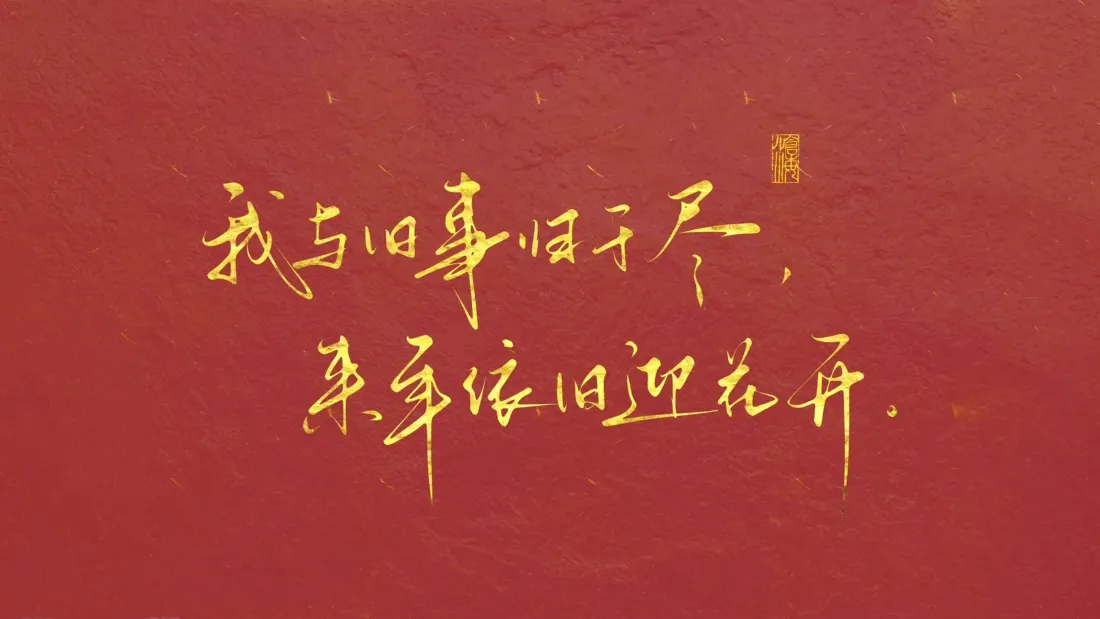 我与旧事归于尽，
来年依旧迎花开。